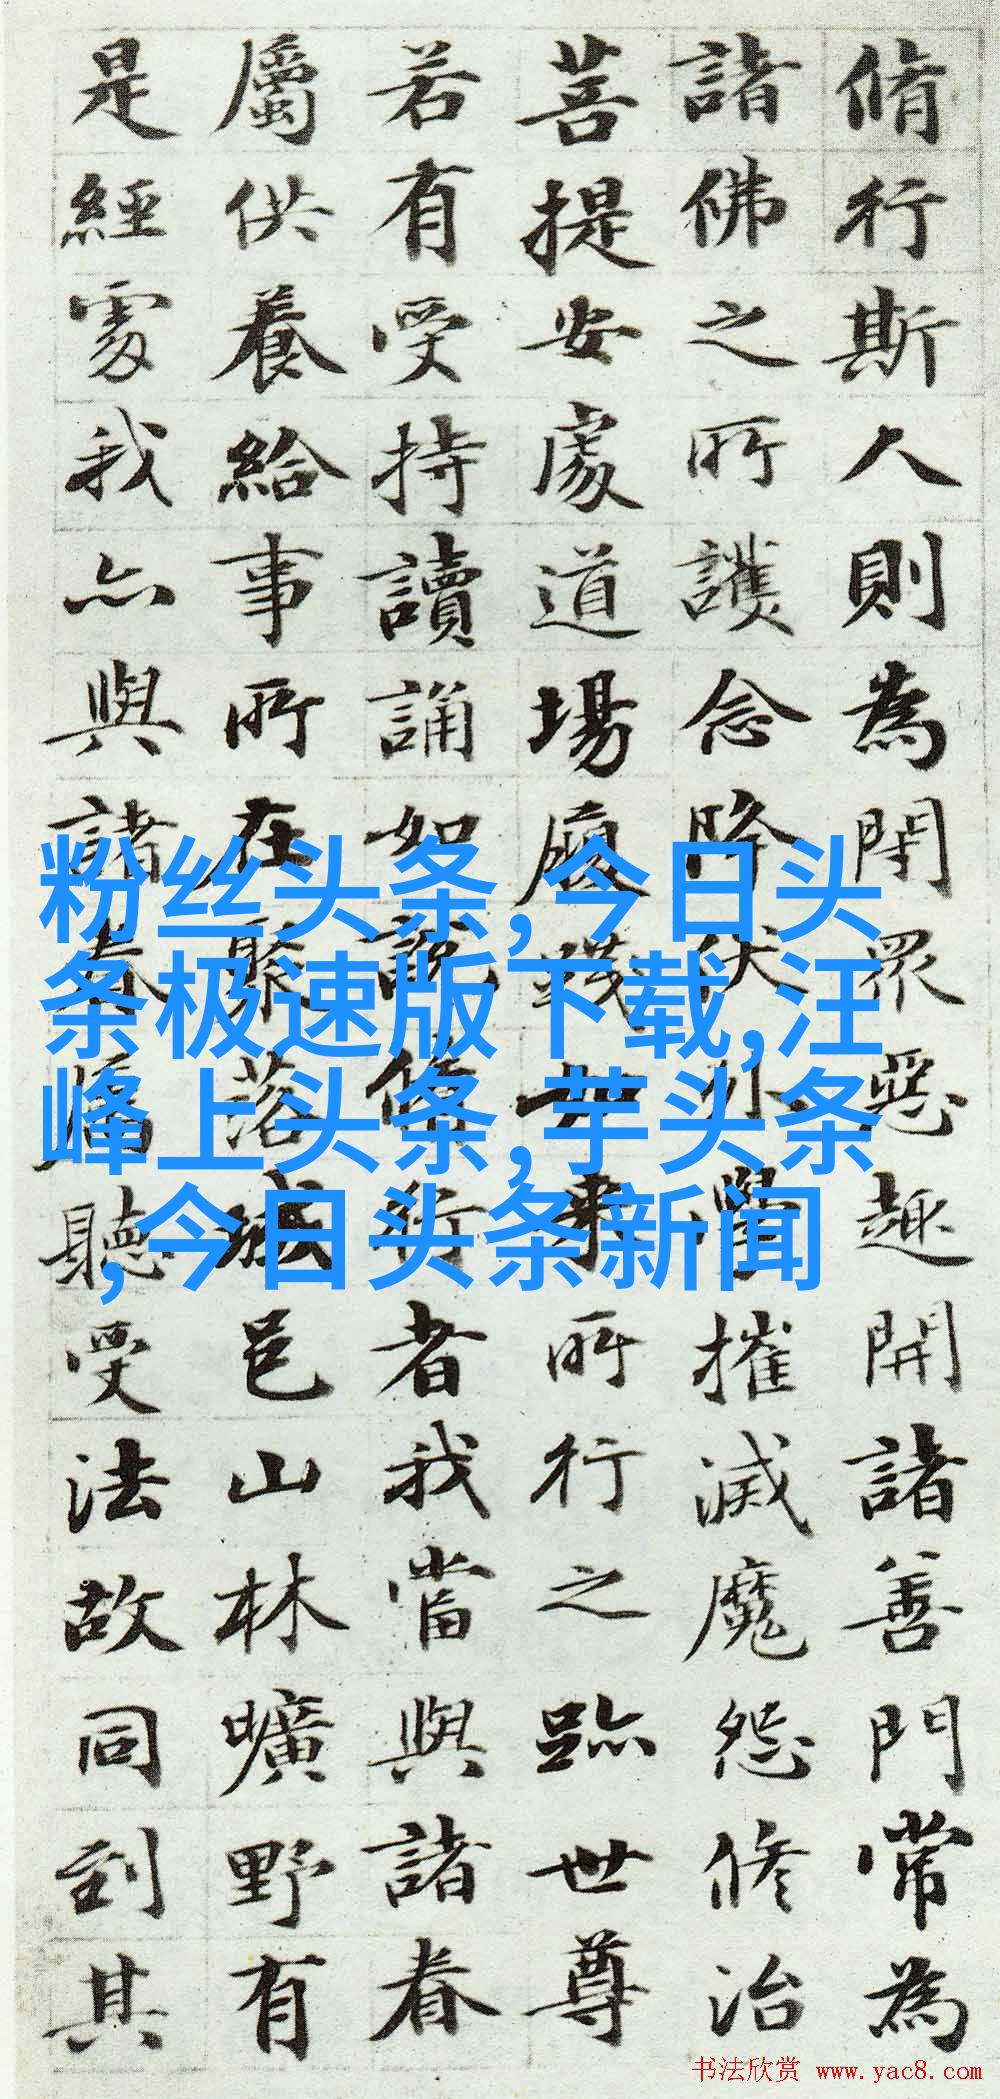 脩行斯人則為閇眾惡趣開諸善門常為
諸佛之所護念降伏外學摧滅魔怨修治
菩提安處道場履踐如來所行之跡世尊
若有受持讀誦如說修行者我當與諸眷
屬供養給事所在聚落城邑山林曠野有
是經處我亦與諸眷屬聽受法故同到其
粉丝头条,今日头
条极速版下载,汪
峰上头条,芋头条
,今日头条新闻
书法欣赏 www.yac8.com